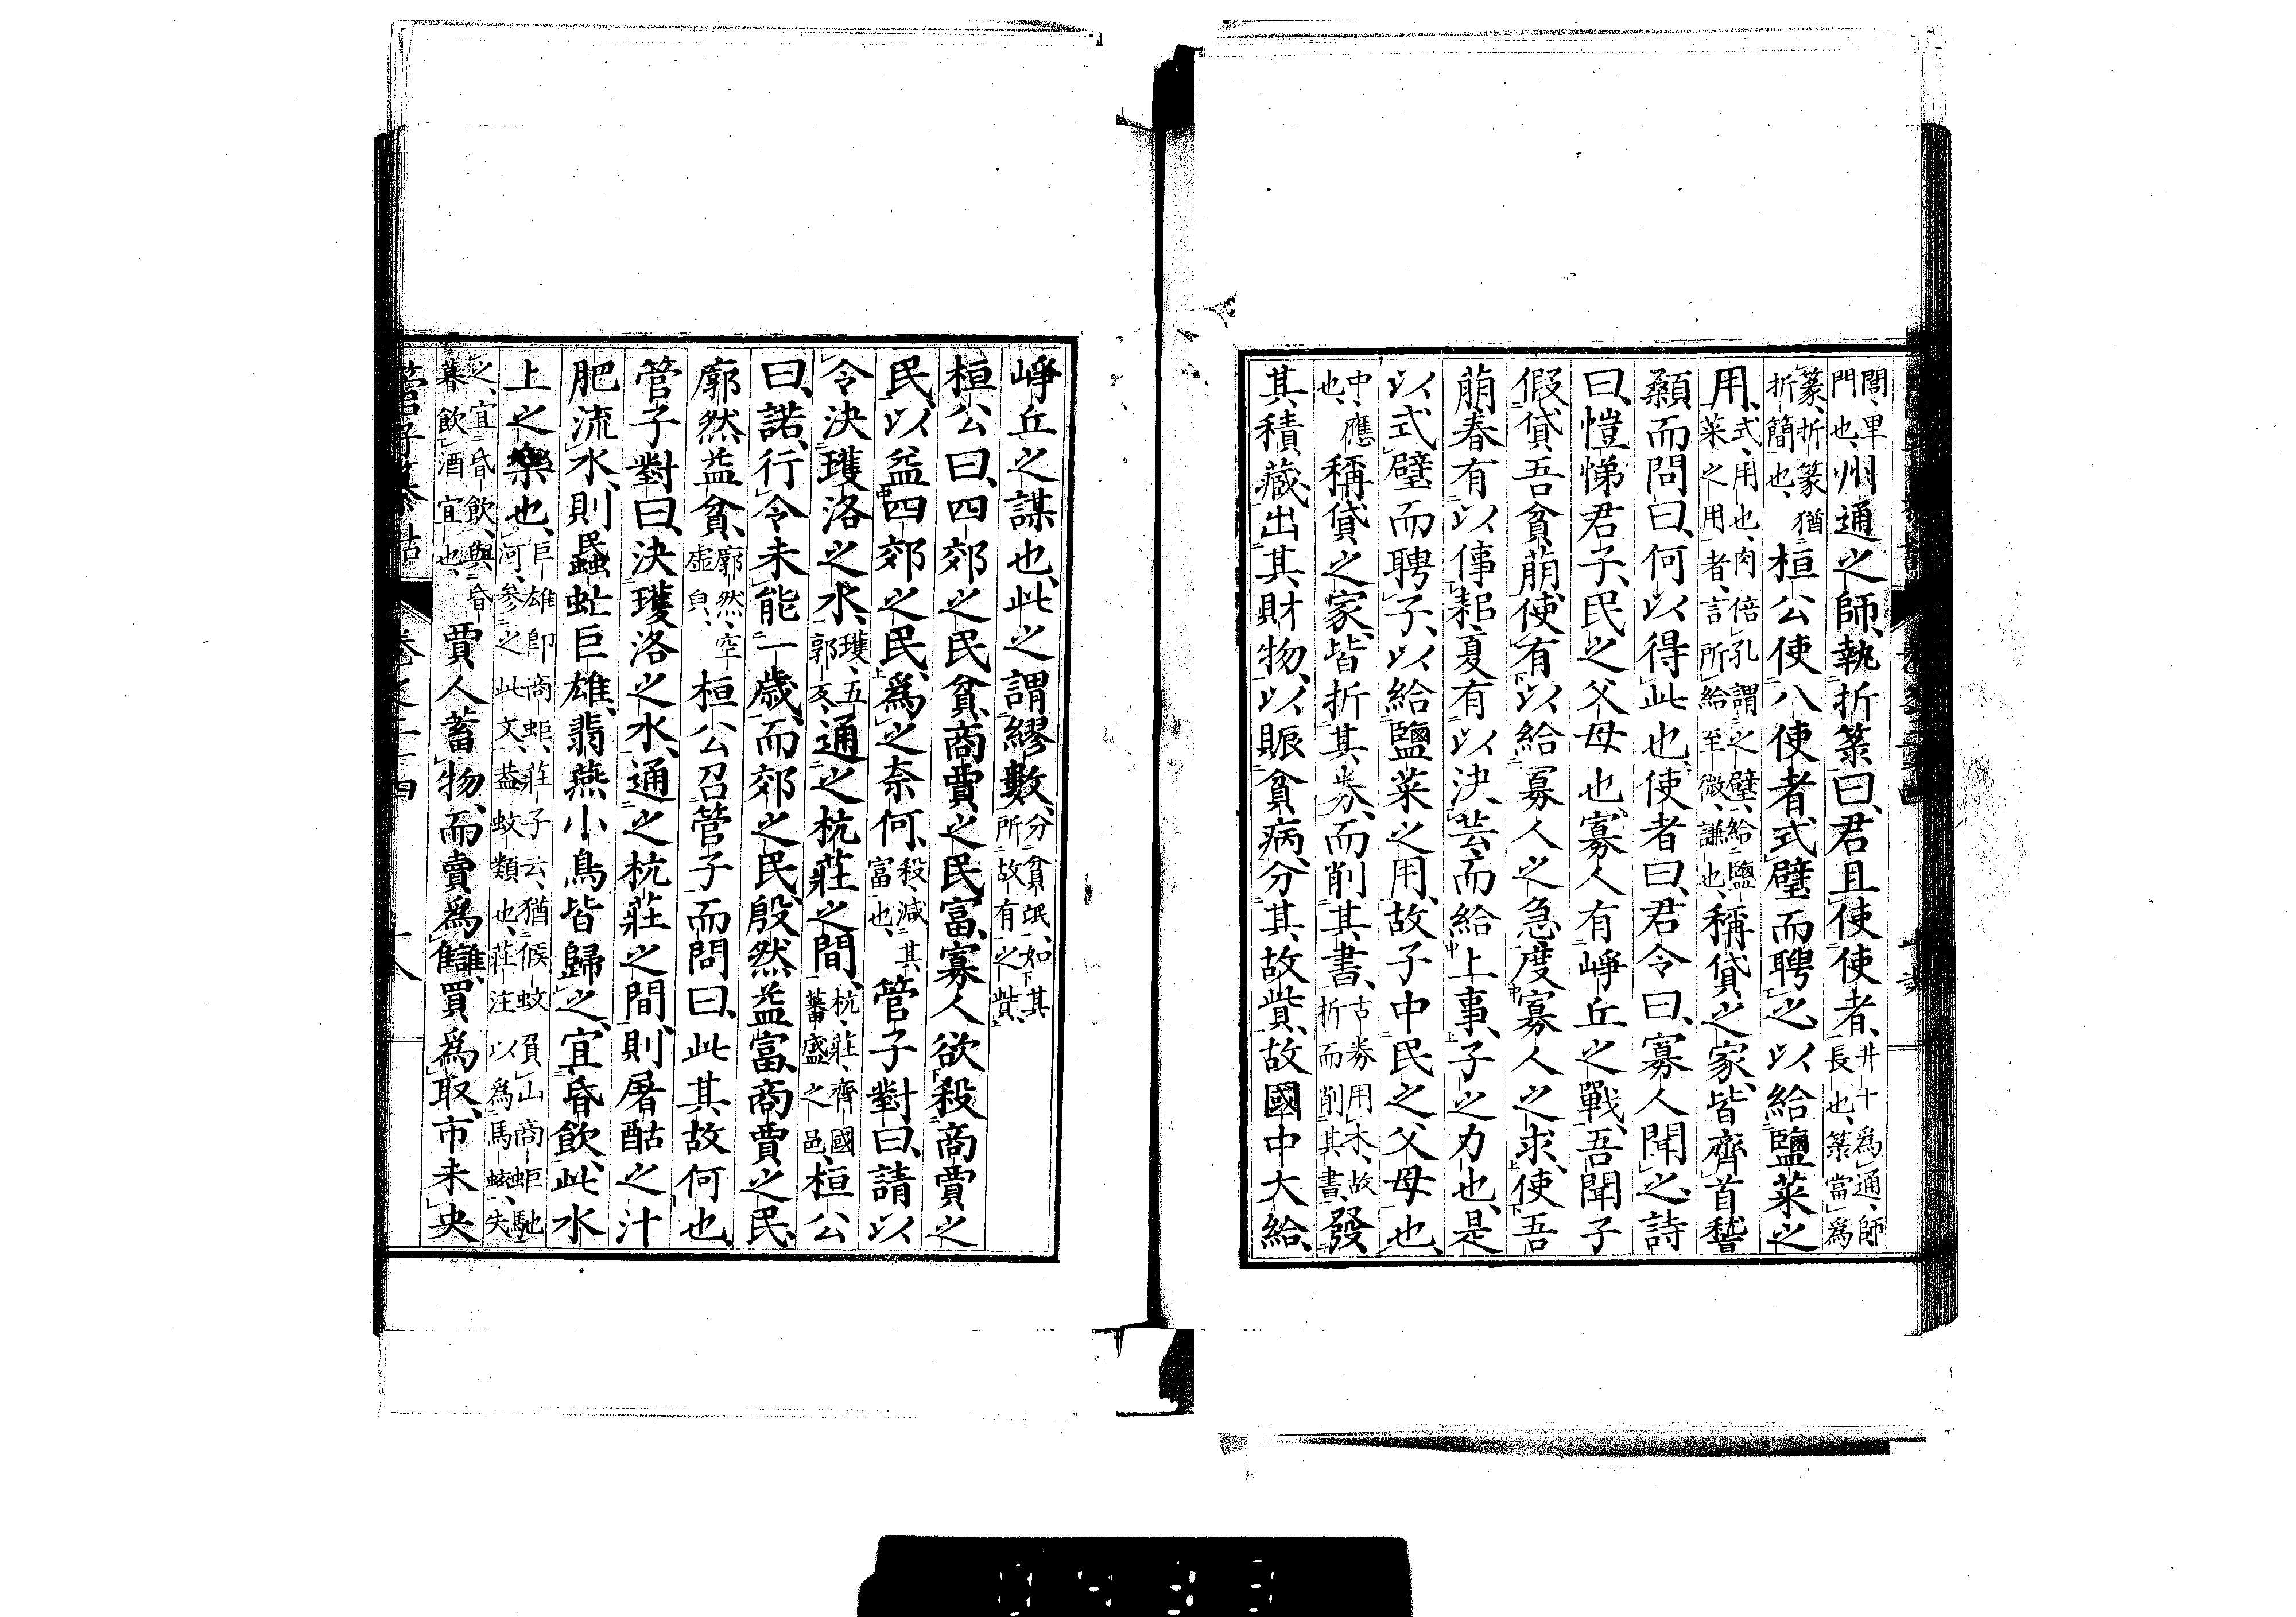 閭里門也、州通之師、執折菉曰、君且使使者、井十爲通、師長也、菉當爲
篆、折篆猶折簡也、桓公使八使者、式璧而聘之、以給鹽菜之
用、式、用也、肉倍孔謂之璧、給鹽菜之用者、言所給至微、謙也、稱貸之家、皆齊首稽
顙而問曰、何以得此也、使者曰、君令曰、寡人聞之、詩
曰、愷悌君子、民之父母也、寡人有崢丘之戰、吾聞子
假貸吾貧萠、使有以給寡人之急、度寡人之求、使吾
萠春有以倳耜、夏有以決芸、而給上事、子之力也、是
以式璧而聘子、以給鹽菜之用、故子中民之父母也、
中、應也、稱貸之家、皆折其券、而削其書、古券用木、故折而削其書、發
其積藏、出其財物、以賑貧病、分其故貲、故國中大給、
崢丘之謀也、此之謂繆數、分貧氓、如其所故有之貲、
桓公曰、四郊之民貧、商賈之民富、寡人欲殺商賈之
民、以益四郊之民、爲之奈何、殺、減其富也、管子對曰、請以
令決瓁洛之水、瓁、五郭亥、通之杭莊之間、杭莊、齊國蕃盛之邑、桓公
曰、諾、行令未能一歲、而郊之民、殷然益富、商賈之民、
廓然益貧、廓然、空虛皃、桓公召管子而問曰、此其故何也、
管子對曰、決瓁洛之水、通之杭莊之間、則屠酤之汁
肥流水、則蟁虻巨雄、翡燕小鳥皆歸之、宜昏飲、此水
上之樂也、巨雄卽商蚷、莊子云、猶候蚊負山商蚷馳河、參之此文、葢蚊類也、莊注以爲馬蚿、失
之、宜昏飲、與昏暮飲酒宜也、賈人蓄物、而賣爲讎、買爲取、市未央
管子纂詁 卷之二十四 十八